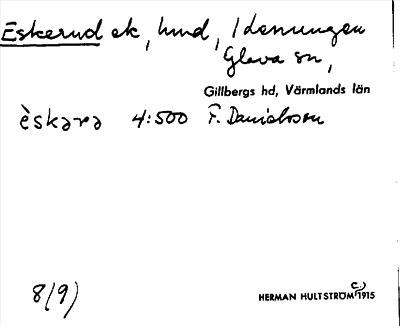 Eskerud ek, hmd, Idenungen
Glava sn,
Gillbergs hd, Värmlands län
èskərə 4:500 F. Danielsson
8(9)
HERMAN HULTSTRÖM C.) 1915